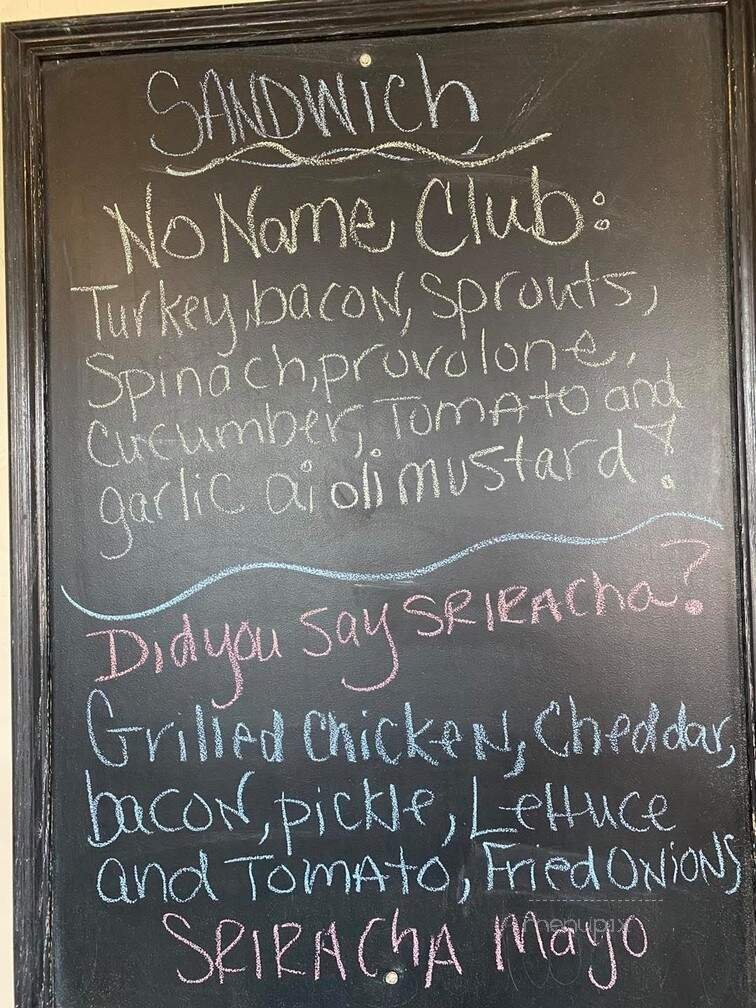 SANDWich
No Name Club:
Turkey, bacon, Sprouts,
Spinach, provolone,
cucumber, Tomato and
garlic aioli mustard!
Did you say SRIRACha?
Grilled chicken, Cheddar,
bacon, pickle, Lettuce
and Tomato, Fried Onions
SRIRACHA Mayo
menupix